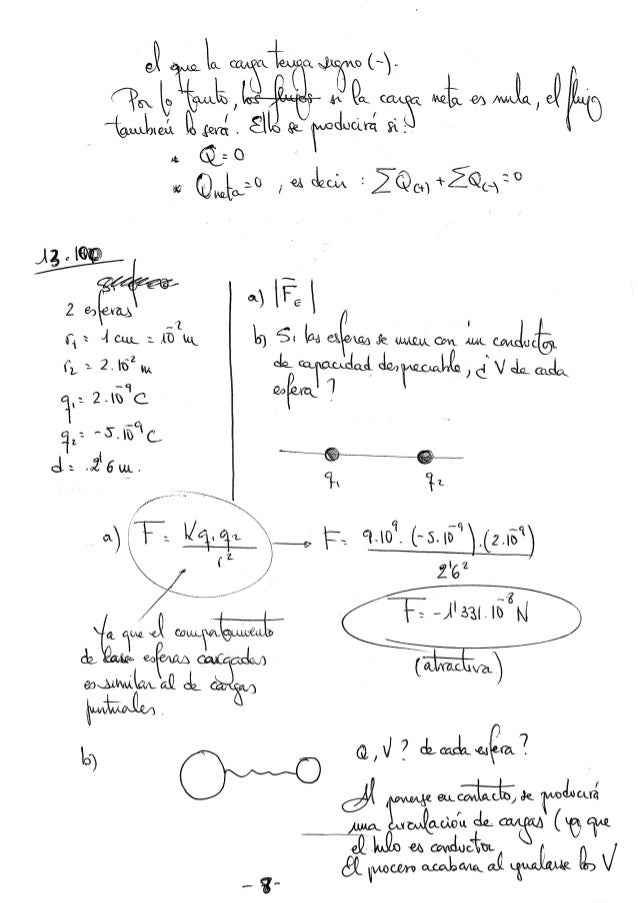 el que la carga tenga signo (-).
Por lo tanto, los flujos si la carga neta es nula, el flujo
también lo será. Ello se producirá si:
* Q=0
* Qneta=0, es decir: ∑Q(+) + ∑Q(-) = 0
13.100
2 esferas
r₁ = 1 cm = 10⁻² m
r₂ = 2.10⁻² m
q₁ = 2.10⁻⁹ C
q₂ = -5.10⁻⁹ C
d = 2'6 m.
a) |F̄e|
b) Si las esferas se unen con un conductor
de capacidad despreciable, ¿V de cada
esfera?
q₁ q₂
a) F = Kq₁q₂ / r² → F = 9.10⁹.(-5.10⁻⁹).(2.10⁻⁹) / 2'6²
F = -1'331.10⁻⁸ N
(atractiva)
Ya que el comportamiento
de esferas cargadas
es similar al de cargas
puntuales.
b)
Q, V? de cada esfera?
Al ponerse en contacto, se producirá
una circulación de cargas (ya que
el hilo es conductor
El proceso acabara al igualarse los V
- 8 -